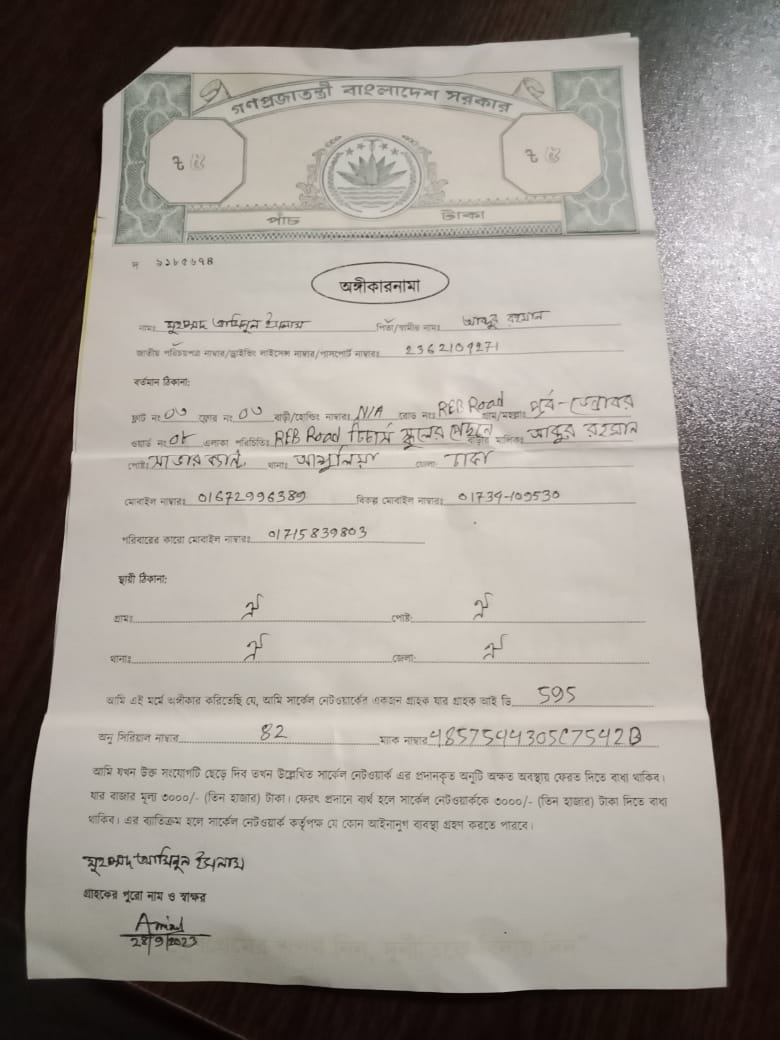 গণপ্রজাতন্ত্রী বাংলাদেশ সরকার
৳ ৫ ৳ ৫
পাঁচ টাকা
অঙ্গীকারনামা
নামঃ মুহম্মদ আমিনুল ইসলাম পিতা/স্বামীর নামঃ আব্দুর রহমান
জাতীয় পরিচয়পত্র নাম্বার/ড্রাইভিং লাইসেন্স নাম্বার/পাসপোর্ট নাম্বারঃ 2362109271
বর্তমান ঠিকানা:
ফ্লাট নং ০৩ ফ্লোর নং ০৩ বাড়ী/হোল্ডিং নাম্বারঃ N/A রোড নংঃ REB Road গ্রাম/মহল্লাঃ পূর্ব-ডেন্ডাবর
ওয়ার্ড নং ০৮ এলাকা পরিচিতিঃ REB Road টিচার্স স্কুলের পেছনে বাড়ীর মালিকঃ আব্দুর রহমান
পোষ্টঃ সাভার ক্যান্ট, থানাঃ আশুলিয়া জেলাঃ ঢাকা
মোবাইল নাম্বারঃ 01672996389 বিকল্প মোবাইল নাম্বারঃ 01734-109530
পরিবারের কারো মোবাইল নাম্বারঃ 01715839803
স্থায়ী ঠিকানা:
গ্রামঃ ঐ পোষ্ট: ঐ
থানাঃ ঐ জেলা: ঐ
আমি এই মর্মে অঙ্গীকার করিতেছি যে, আমি সার্কেল নেটওয়ার্কের একজন গ্রাহক যার গ্রাহক আই ডি 595
অনু সিরিয়াল নাম্বার 82 ম্যাক নাম্বার 4857544305C7542B
আমি যখন উক্ত সংযোগটি ছেড়ে দিব তখন উল্লেখিত সার্কেল নেটওয়ার্ক এর প্রদানকৃত অনুটি অক্ষত অবস্থায় ফেরত দিতে বাধ্য থাকিব।
যার বাজার মূল্য ৩০০০/- (তিন হাজার) টাকা। ফেরৎ প্রদানে ব্যর্থ হলে সার্কেল নেটওয়ার্ককে ৩০০০/- (তিন হাজার) টাকা দিতে বাধ্য
থাকিব। এর ব্যতিক্রম হলে সার্কেল নেটওয়ার্ক কর্তৃপক্ষ যে কোন আইনানুগ ব্যবস্থা গ্রহণ করতে পারবে।
মুহম্মদ আমিনুল ইসলাম
গ্রাহকের পুরো নাম ও স্বাক্ষর
28/9/2023